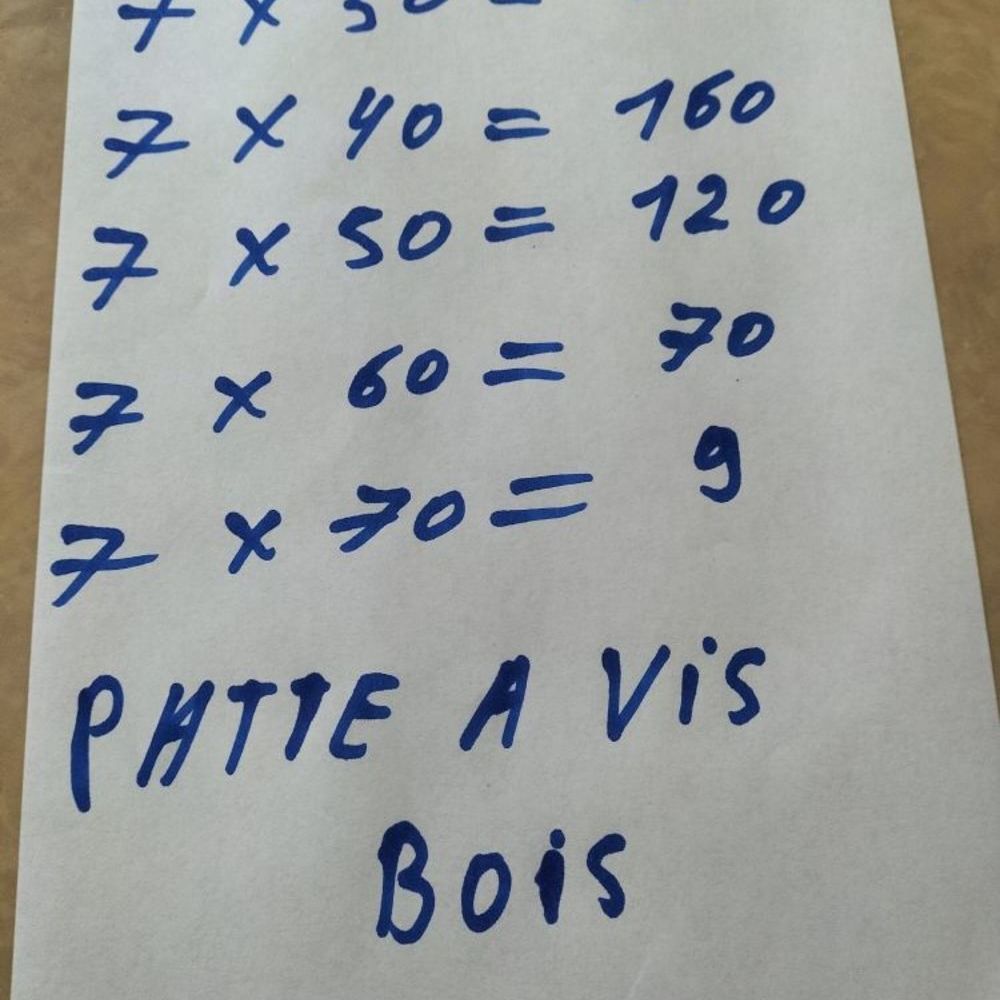 7 x 30 =
7 x 40 = 160
7 x 50 = 120
7 x 60 = 70
7 x 70 = 9
PATTE A VIS
BOIS